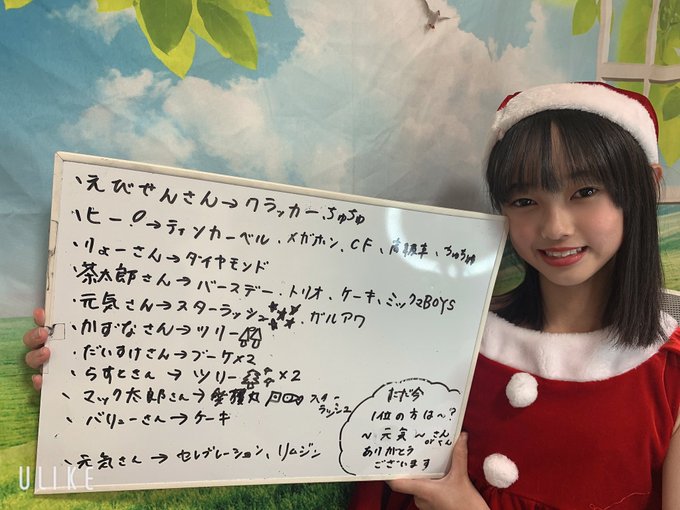 ・えびせんさん→クラッカー、ちゅちゅ
・ヒー!→ティンカーベル、メガホン、CF、ちゅちゅ
・りょーさん→ダイヤモンド
・茶太郎さん→バースデー、トリオ、ケーキ、ミックスBOYS
・元気さん→スターラッシュ、ガルアワ
・かずなさん→ツリー
・だいすけさん→ブーケ×2
・らすとさん→ツリー×2
・マック太郎さん→ スターラッシュ
・バリューさん→ケーキ
・元気さん→セレブレーション、リムジン
ただ今
1位の方は〜?
〜元気〜さん
orくん
ありがとう
ございます
ULIKE